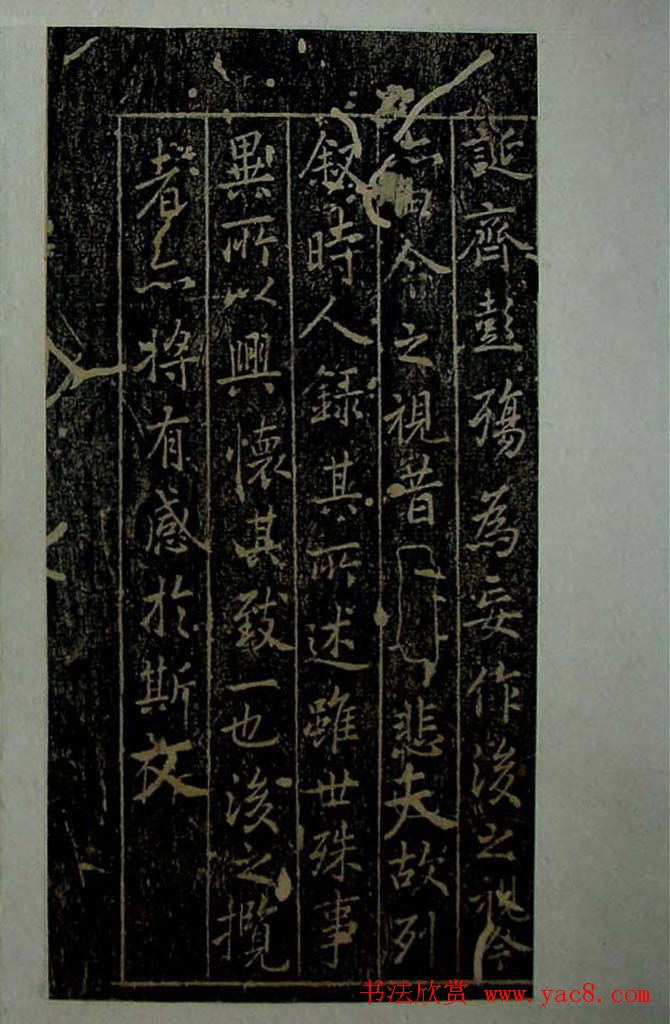 誕齊彭殤為妄作後之視今
亦由今之視昔悲夫故列
叙時人錄其所述雖世殊事
異所以興懷其致一也後之攬
者亦將有感於斯文
书法欣赏 www.yac8.com